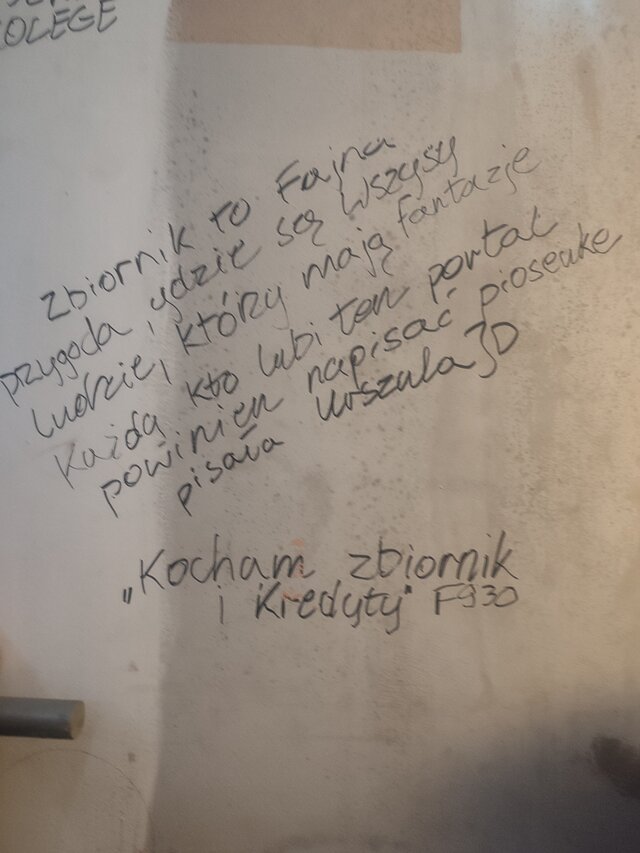 OLEGE
Zbiornik to Fajna
przygoda, gdzie są wszysy
ludzie, którzy mają fantazje
Każdą kto lubi ten portal
powinien napisać piosenke
pisała Urszula JD
„Kocham zbiornik
i Kredyty" F930